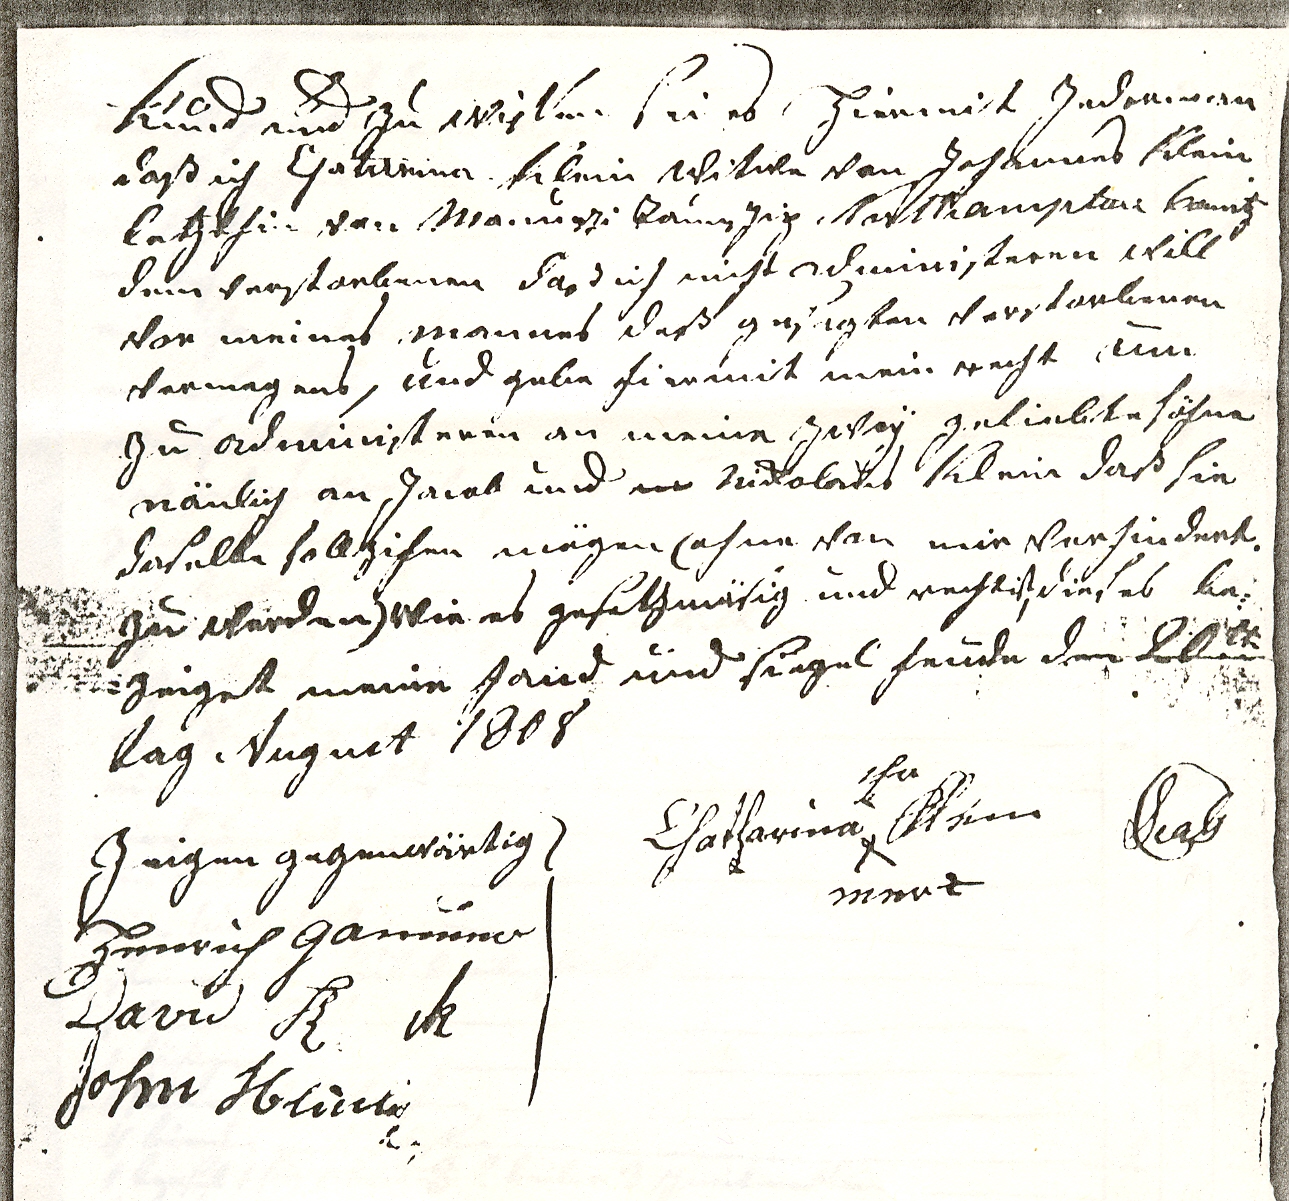 Kund und Zu wissen sei es Hiermit Jederman
daß ich Chatarina Klein Witwe von Johannes Klein
letzthin von Taunschip Northampton Caunty
dem verstorbenen Daß ich nicht administeren will
vor meines mannes deß gesagten verstorbenen
vermegens, und gebe hiermit mein recht um
Zu administeren an meine zwey geliebte söhne
nämlich an Jacob und Nickolaus Klein daß sie
daselbe follzihen mögen (ohne von mir verhindert
zu werden) wie es gesetzmäsig und rechtist, dieses be:
=zeiget meine Hand und siegel heude den
tag August 1808
Chatharina her Klein Seal
x
merk
Zeigen gegenwärtig
Henrich
David
John